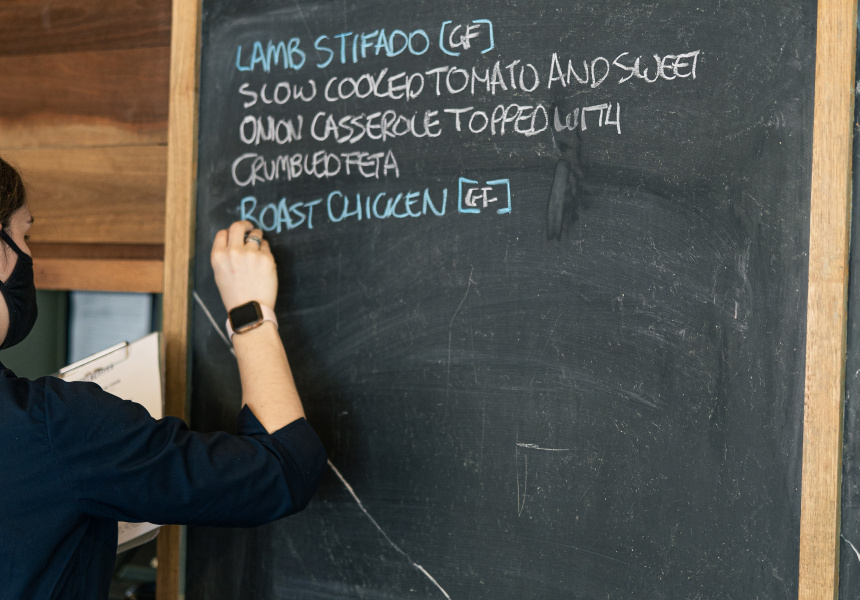 LAMB STIFADO [GF]
SLOW COOKED TOMATO AND SWEET
ONION CASSEROLE TOPPED WITH
CRUMBLED FETA
ROAST CHICKEN [GF]